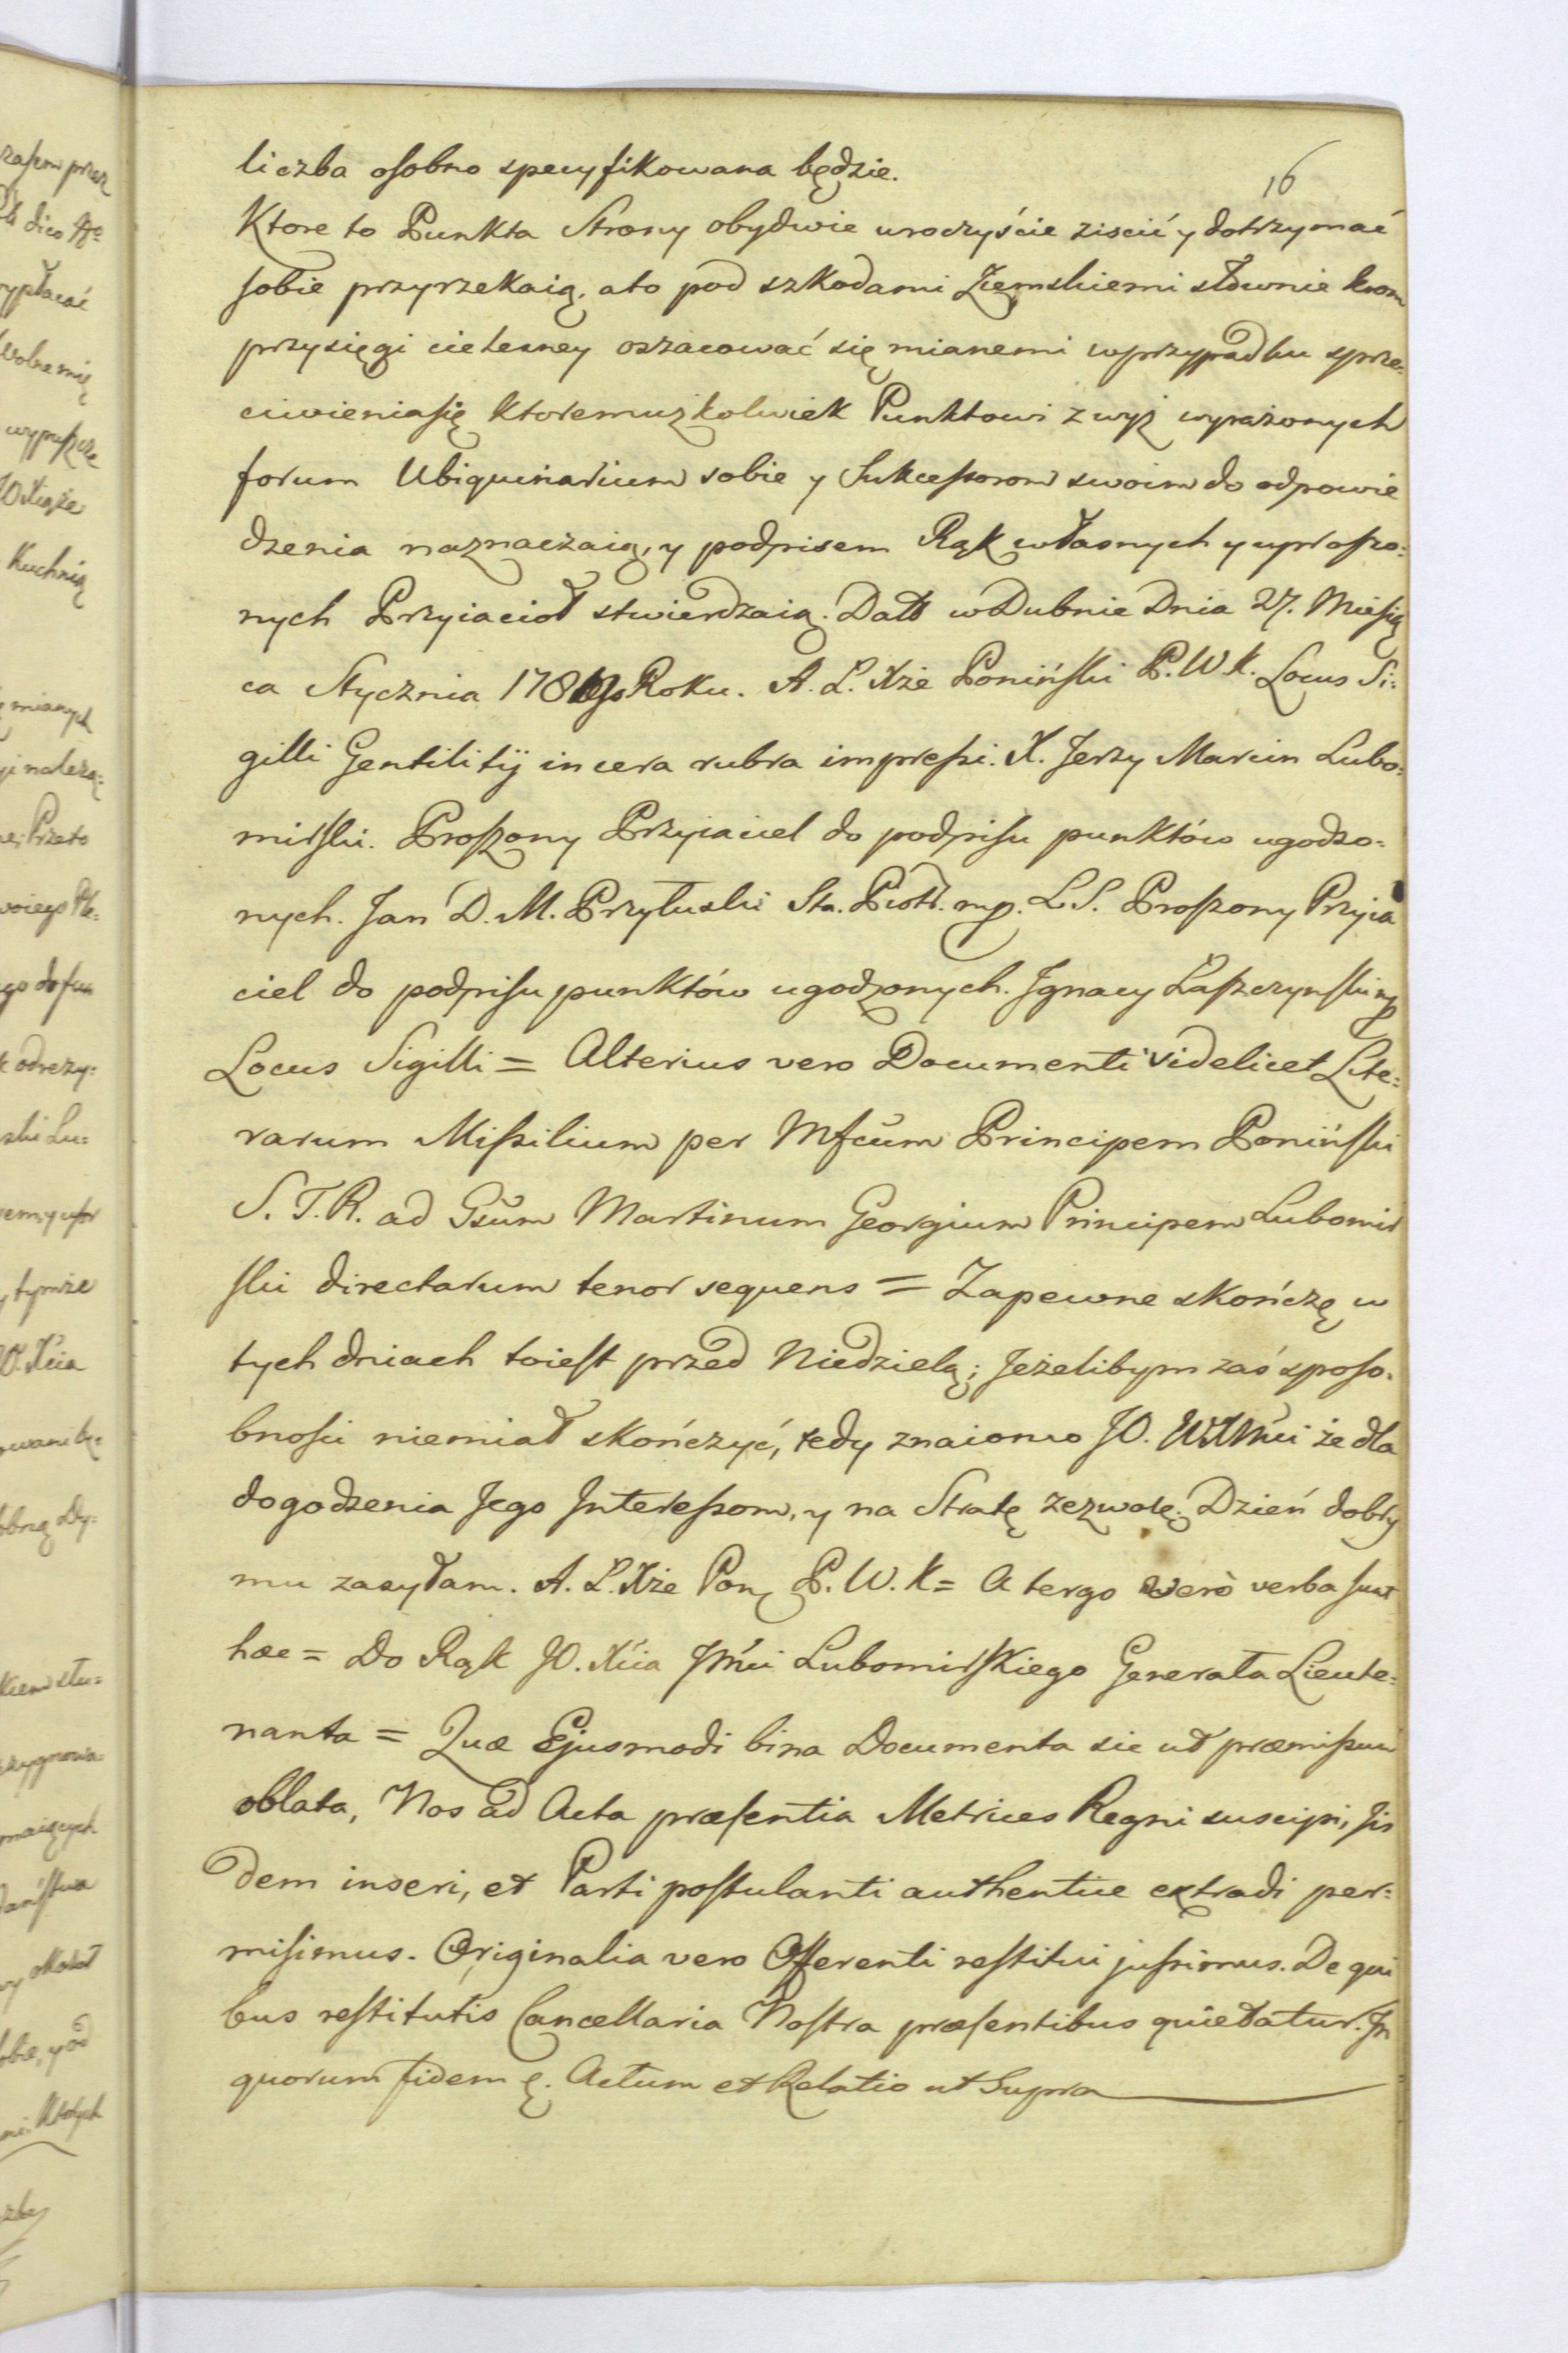 16
liczba osobno specyfikowana będzie.
Ktore to Punkta Strony obydwie uroczyście ziscić y dotrzymać
sobie przyrzekaią, a to pod szkodami Ziemskiemi słownie krom
przysięgi cielesney oszacować się mianemi w przypadku sprze-
ciwienia się ktoremużkolwiek Punktowi z wyż wyrażonych
forum Ubiquinarium sobie y Sukcessorom swoim do odpowie
dzenia naznaczaią, y podpisem Rąk własnych y uproszo-
nych Przyiacioł stwierdzaią. Datt w Dubnie Dnia 27. Miesią
ca Stycznia Roku. A. L. Xże Poniński P. W. K. Locus Si:
gilli Gentilitij in cera rubra impressi. X. Jerzy Marcin Lubo-
mirski. Proszony Przyiaciel do podpisu punktów ugodzo-
nych. Jan D. M. Przyłuski Sta. Piotr. mp. L. S. Proszony Przyia
ciel do podpisu punktów ugodzonych. Ignacy Łaszczynski mp
Locus Sigilli = Alterius vero Documenti videlicet Lite-
rarum Missilium per Mfcum Principem Poniński
S. T. R. ad Gsum Martinum Georgium Principem Lubomir
ski directarum tenor sequens = Zapewne skończę w
tych dniach toiest przed Niedzielą; Jeżelibym zaś sposo-
bności niemiał skończyć, tedy znaiomo JO. WXMci że dla
dogodzenia Jego Interessom, y na Stratę zezwolę. Dzień dobry
mu zasyłam. A. L. Xże Pon P. W. K = A tergo verò verba sunt
hæc = Do Rąk JO. Xcia Jmci Lubomirskiego Generała Lieute-
nanta = Quæ Ejusmodi bina Documenta sic ut præmissum
oblata, Nos ad Acta præsentia Metrices Regni suscipi, Jis
dem inseri, et Parti postulanti authentice extradi per-
misimus. Originalia vero Offerenti restitui jussimus. De qui
bus restitutis Cancellaria Nostra præsentibus quietatur. In
quorum fidem &. Actum et Relatio ut Supra